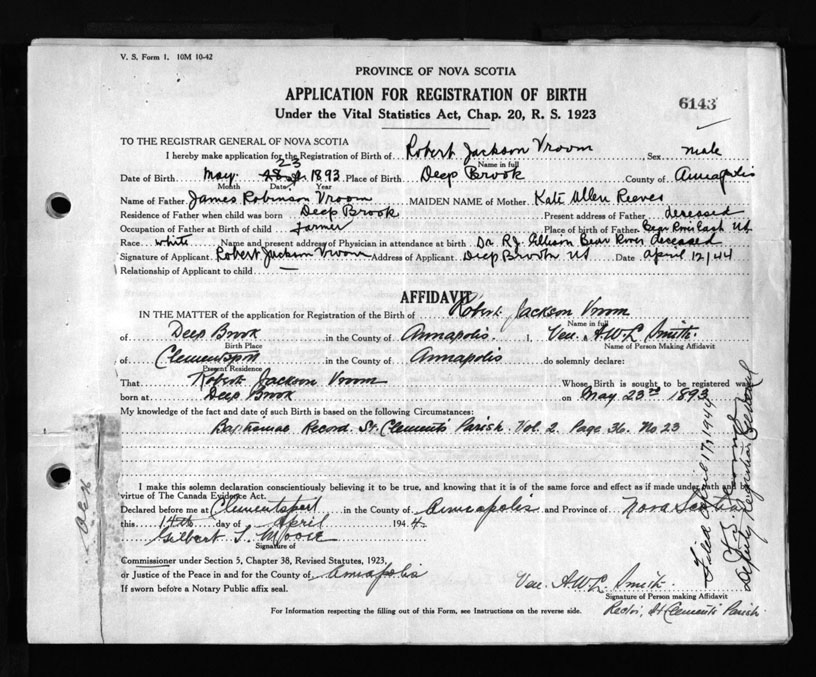 V. S. Form 1. 10M 10-42
PROVINCE OF NOVA SCOTIA
APPLICATION FOR REGISTRATION OF BIRTH
6143
Under the Vital Statistics Act, Chap. 20, R. S. 1923
TO THE REGISTRAR GENERAL OF NOVA SCOTIA
I hereby make application for the Registration of Birth of Robert Jackson Vroom Sex male
Name in full
Date of Birth May 23 1893 Place of Birth Deep Brook County of Annapolis
Month Date Year
Name of Father James Robinson Vroom MAIDEN NAME of Mother Kate Allen Reeves
Residence of Father when child was born Deep Brook Present address of Father deceased
Occupation of Father at Birth of child Farmer Place of birth of Father
Race white Name and present address of Physician in attendance at birth Dr. R.J. Ellison Bear River deceased
Signature of Applicant Robert Jackson Vroom Address of Applicant Deep Brook NS Date April 12/44
Relationship of Applicant to child
AFFIDAVIT
IN THE MATTER of the application for Registration of the Birth of Robert Jackson Vroom
Name in full
of Deep Brook in the County of Annapolis. I, Ven. A.W.L. Smith.
Birth Place Name of Person Making Affidavit
of Clementsport in the County of Annapolis do solemnly declare:
Present Residence
That Robert Jackson Vroom Whose Birth is sought to be registered was
born at Deep Brook on May 23rd 1893
My knowledge of the fact and date of such Birth is based on the following Circumstances:
Baptismal Record. St. Clements Parish. Vol. 2. Page 36. No 23
I make this solemn declaration conscientiously believing it to be true, and knowing that it is of the same force and effect as if made under oath and by
virtue of The Canada Evidence Act.
Declared before me at Clementsport in the County of Annapolis and Province of Nova Scotia
this 14th day of April 1944
Gilbert T. Moore
Signature of
Commissioner under Section 5, Chapter 38, Revised Statutes, 1923,
or Justice of the Peace in and for the County of Annapolis
If sworn before a Notary Public affix seal.
Ven. A.W.L. Smith.
Signature of Person making Affidavit
Rector, St Clements Parish.
For Information respecting the filling out of this Form, see Instructions on the reverse side.
Filed April 17, 1944
Deputy Registrar General